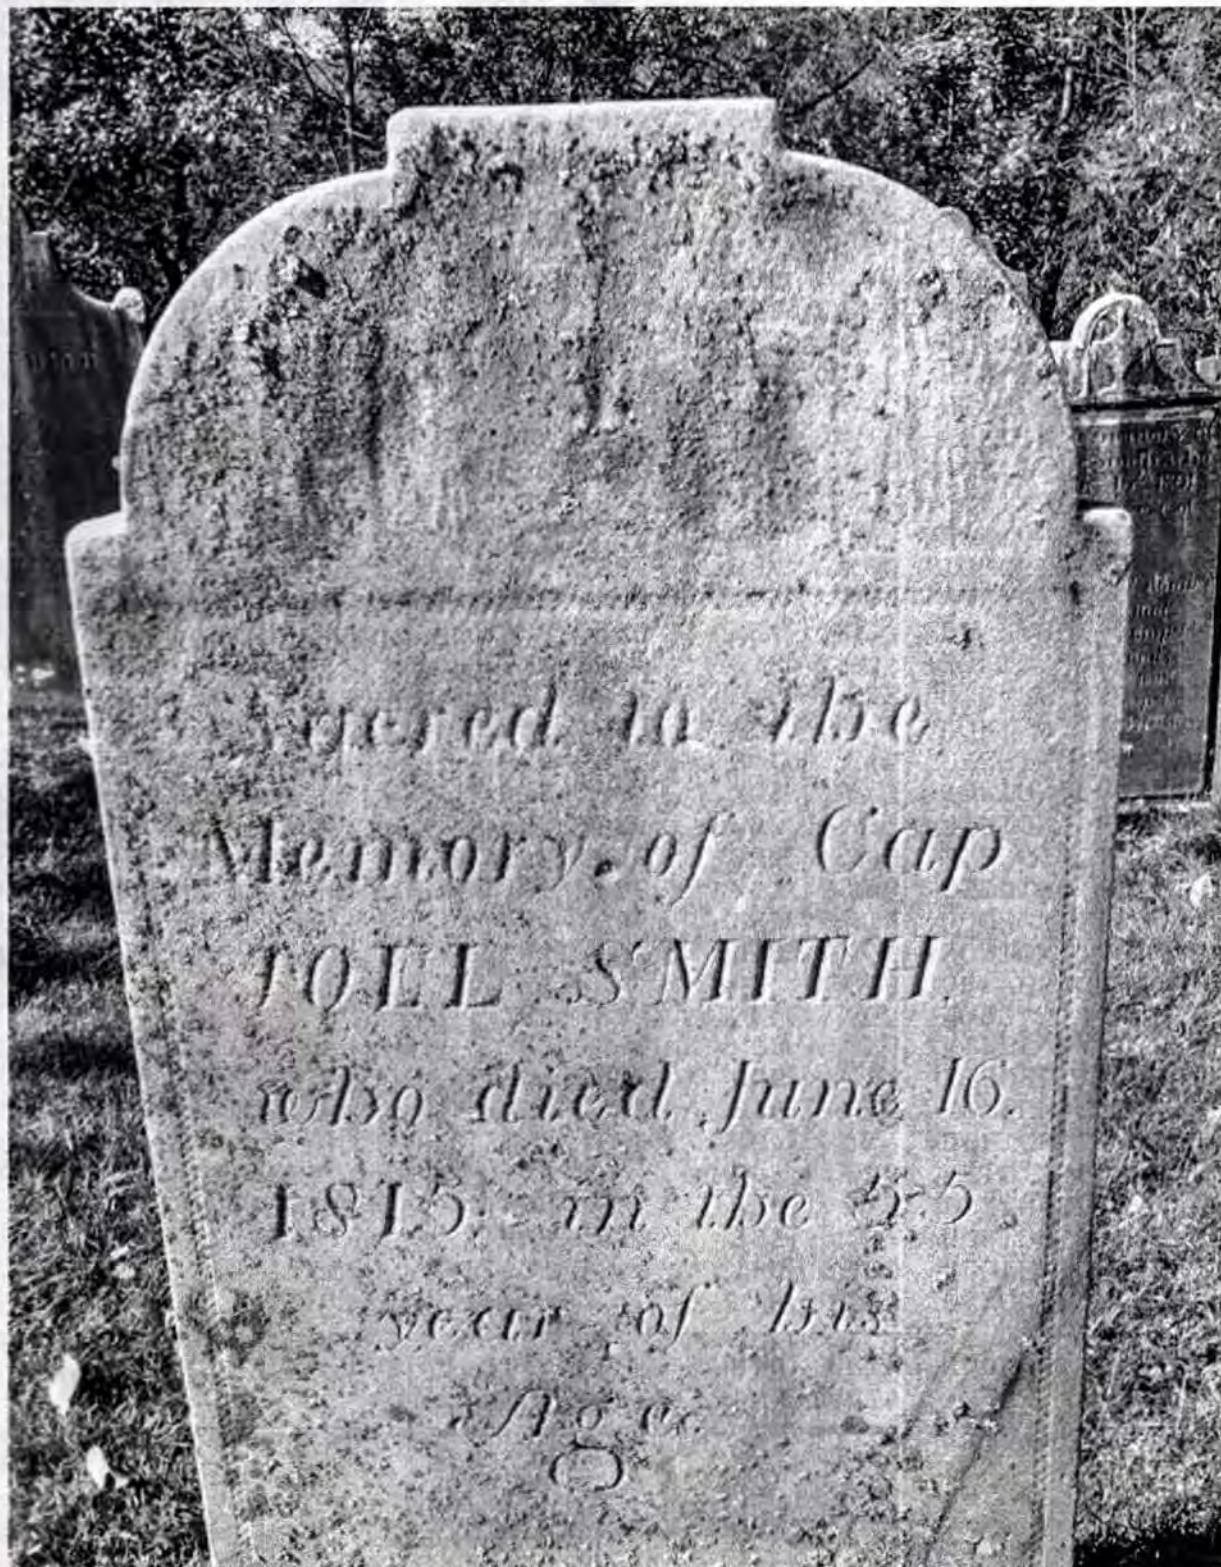 Sacred to the
Memory of Cap
JOEL SMITH.
who died June 16.
1815. in the 55
year of his
Age.